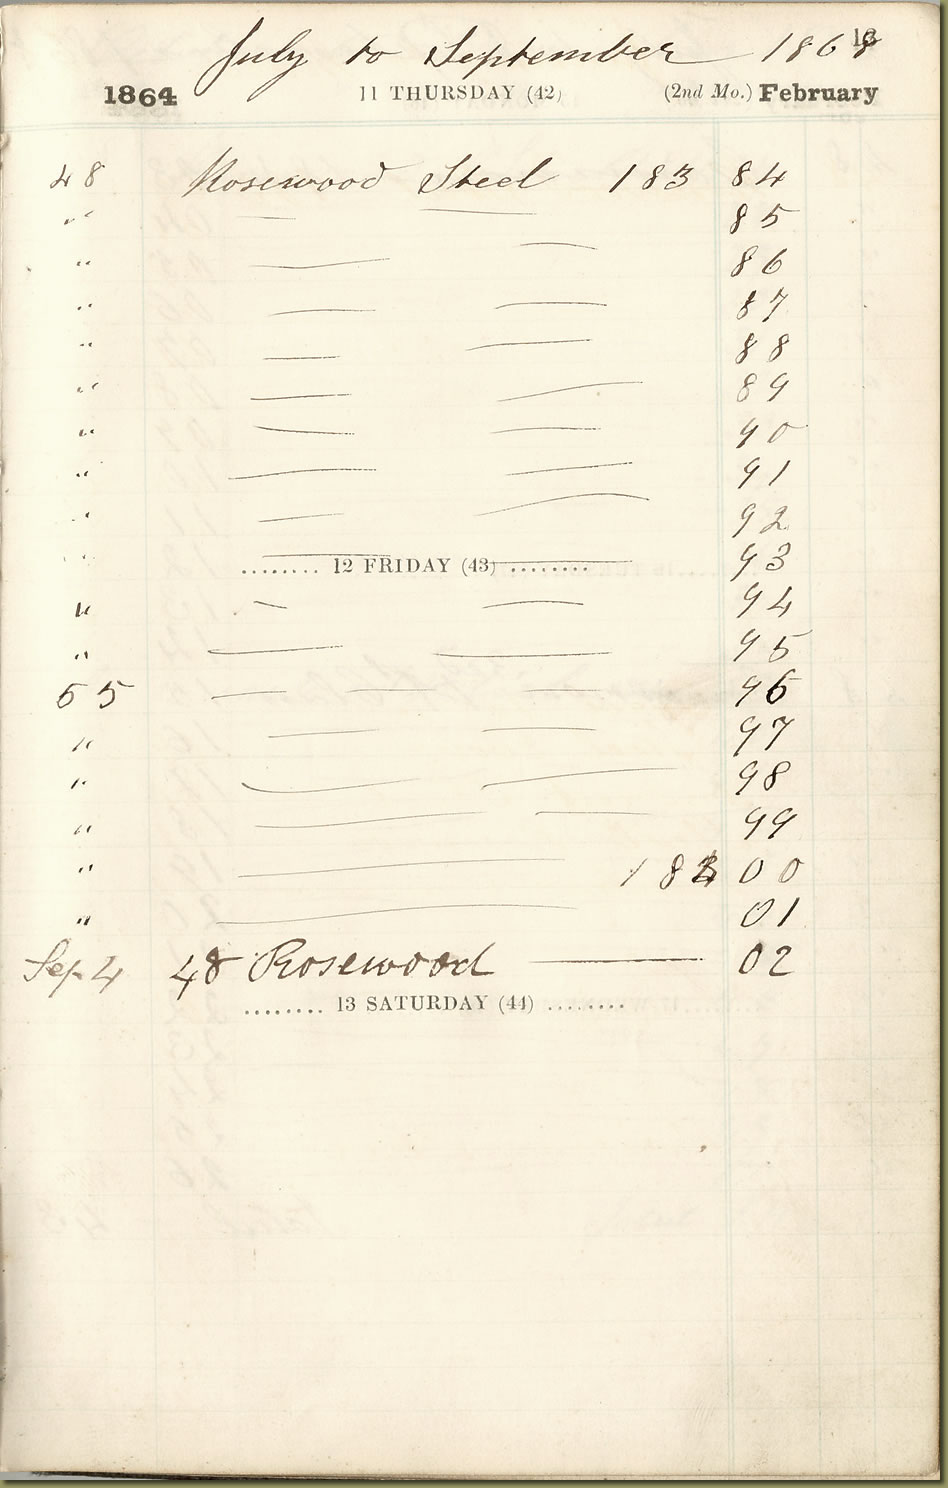 July to September 1868
13
1864 11 THURSDAY (42) (2nd Mo.) February
48 Rosewood Steel 183 84
" — — 85
" — — 86
" — — 87
" — — 88
" — — 89
" — — 90
" — — 91
" — — 92
" — — 93
........ 12 FRIDAY (43) ........
" — — 94
" — — 95
55 — — — 96
" — — 97
" — — 98
" — — 99
" — 184 00
" — 01
Sep 4 48 Rosewood — 02
........ 13 SATURDAY (44) ........